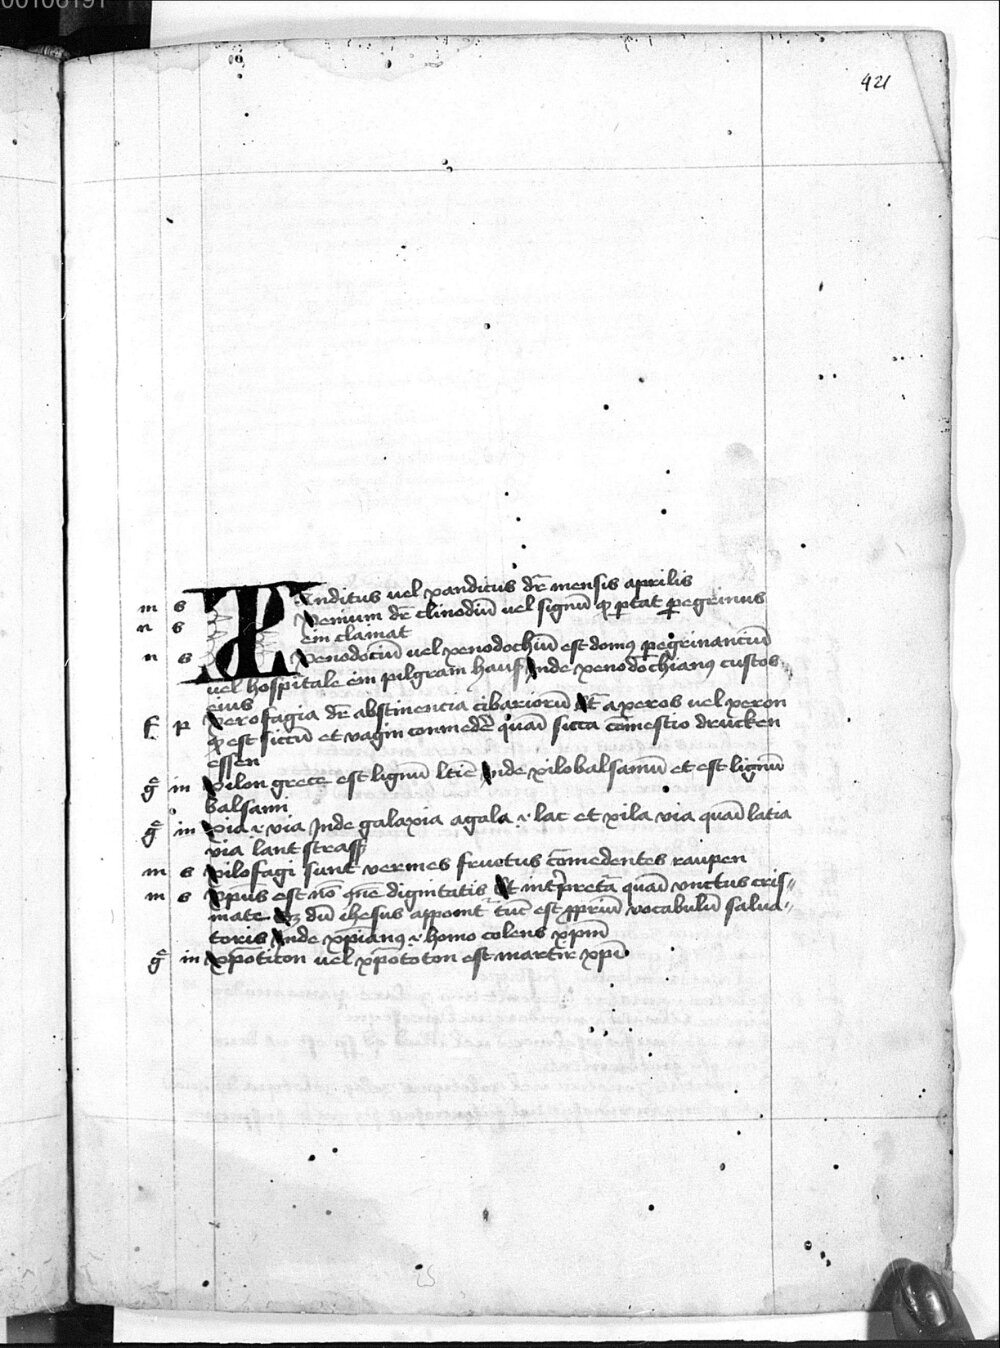 00108191
421
m s Xanditus uel xandicus dr̄ mensis aprilis
n s Xenium dr̄ clinodiū uel signū qͦ ptat p̱egrinus
ein clainat
n s Xenodociū uel xenodochiū est domꝰ p̱egrinanciū
uel hospitale ein pilgram hauß Inde xenodochianꝰ custos
eius
f p Xerofagia dr̄ abstinencia cibariorū Et a xeros uel xeron
qͦ est siccū et uagin conmedē quāi sicca cōmestio drucken
essen
g̅ in Xilon grece est lignū ltīe Inde xilobalsamū et est lignū
balsami
g̅ in Xia .i. uia Inde galaxia a gala .i. lac et xila uia quāi latia
uia lant strasß
m s Xilofagi sunt vermes fructus cōmedentes raupen
m s Xp̄us est nō qn̄e dignitatis Et int̄pretā quāi vnctus cris⸗
mate Sꝫ dū ihesus appoint̄ tūc est ꝓpriū vocabulū salua⸗
toris Inde xp̄ianꝰ .i. homo colens xpm̄
g̅ in Xp̄otiton uel xp̄ototon est martir xpī